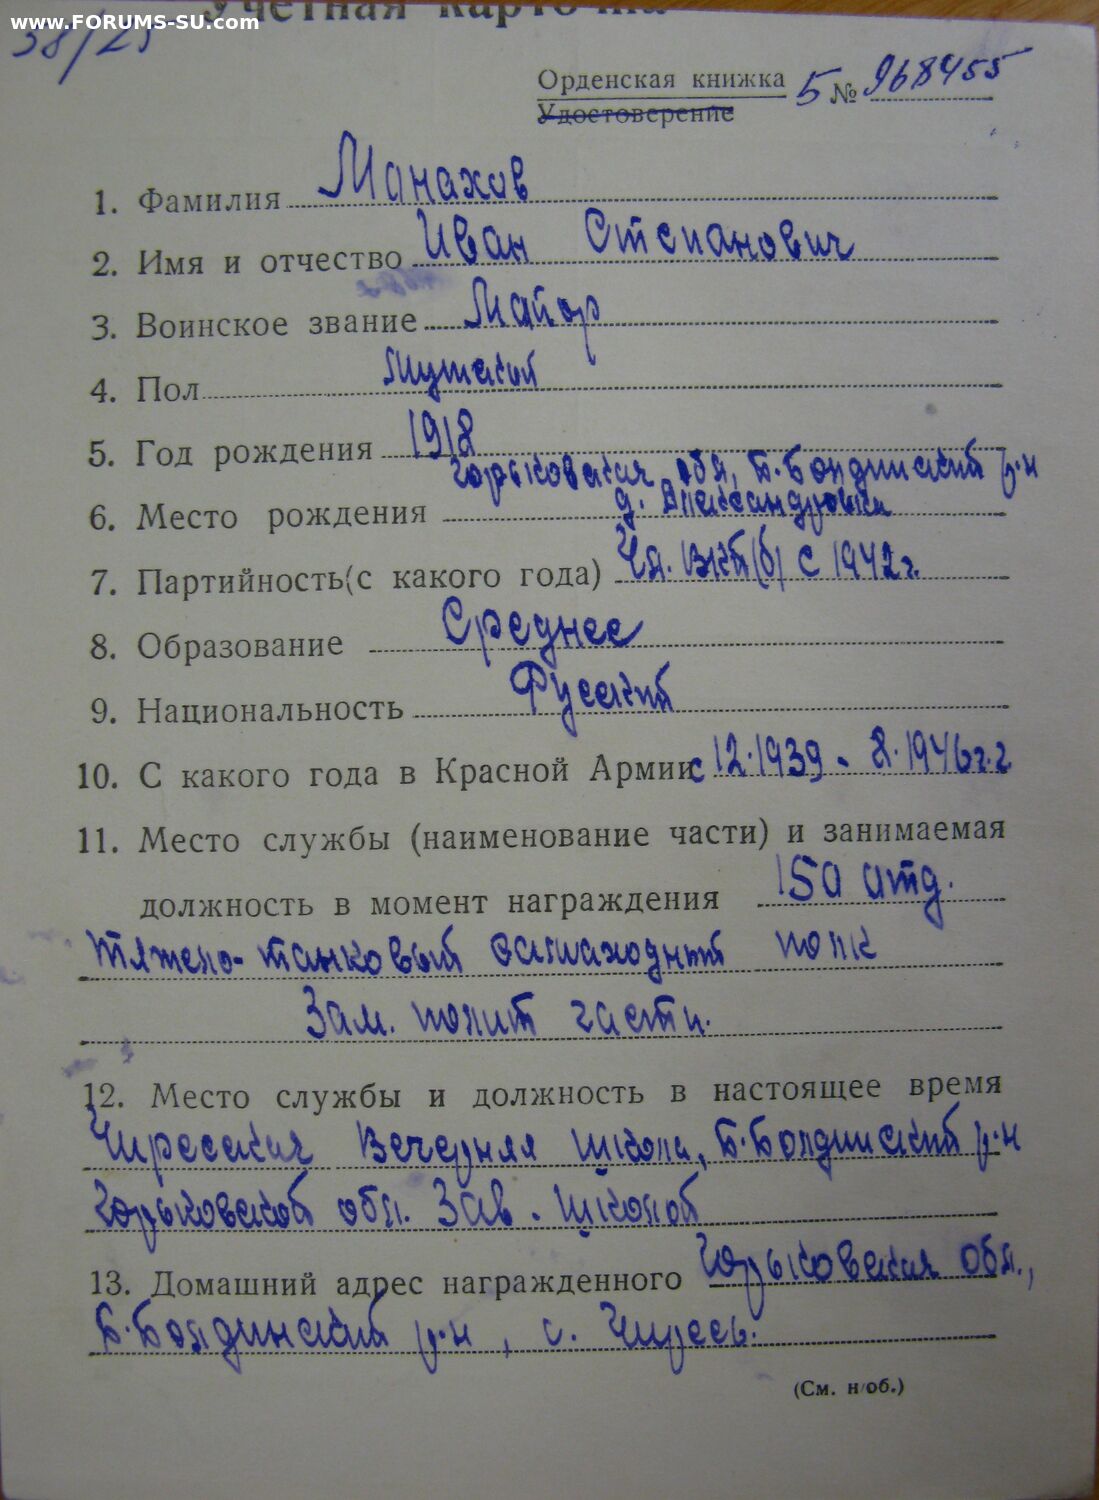 www.FORUMS-SU.com
Учетная карточка
38/25
Орденская книжка Б № 968455
Удостоверение
1. Фамилия Манахов
2. Имя и отчество Иван Степанович
3. Воинское звание Майор
4. Пол Мужской
5. Год рождения 1918
Горьковская обл, Б-Болдинский р-н
6. Место рождения д. Александровка
7. Партийность (с какого года) Чл. ВКП(б) с 1942 г.
8. Образование Среднее
9. Национальность Русский
10. С какого года в Красной Армии с 12.1939 - 8.1946 г.г
11. Место службы (наименование части) и занимаемая
должность в момент награждения 150 отд.
тяжело-танковый самоходный полк
Зам. полит части.
12. Место службы и должность в настоящее время
Чиресская Вечерняя школа, Б-Болдинский р-н
Горьковской обл. Зав. школой
13. Домашний адрес награжденного Горьковская обл.,
Б-Болдинский р-н, с. Чиресь.
(См. н/об.)